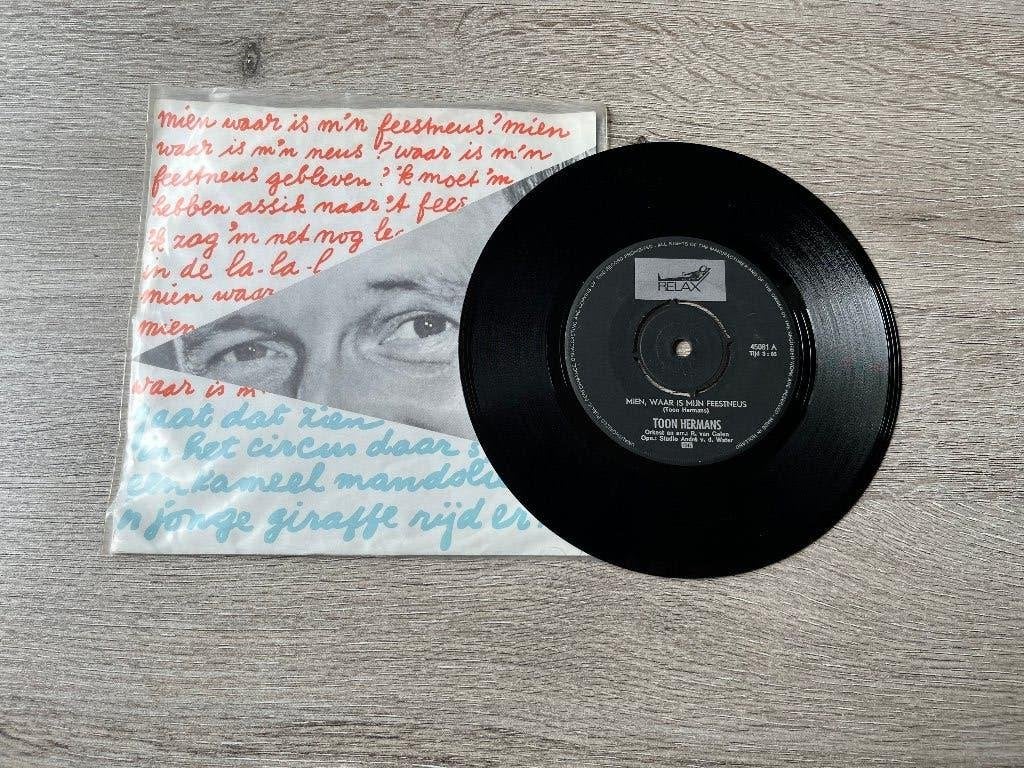 mien waar is m'n feestneus? mien
waar is m'n neus? waar is m'n
feestneus gebleven? 'k moet 'm
hebben assik naar 't fees
'k zag 'm net nog le
in de la-la-l
mien waar
mien
waar is m
gaat dat zien
het circus
een kameel mandoli
'n jonge giraffe rijd er
RELAX
45081 A
MIEN, WAAR IS MIJN FEESTNEUS
(Toon Hermans)
TOON HERMANS
Orkest en arr.: R. van Galen
Opn.: Studio André v. d. Water